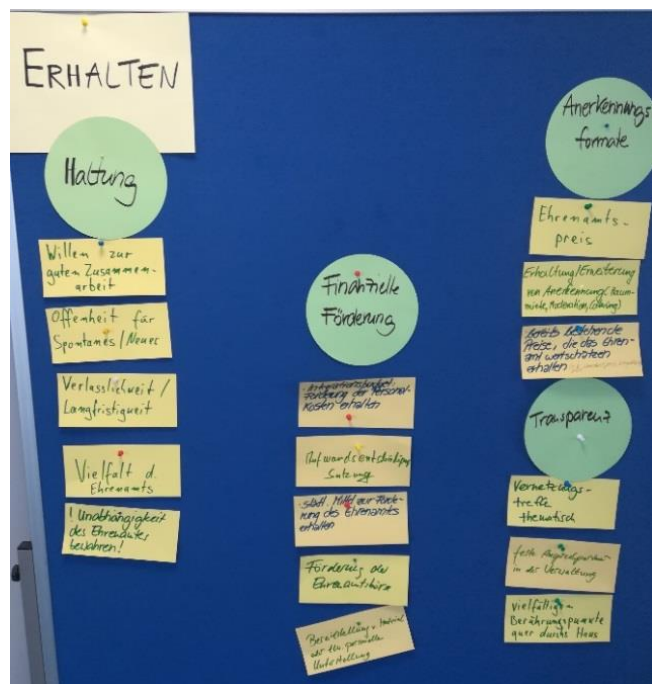 ERHALTEN
Haltung
Willen zur
guten Zusammen-
arbeit
Offenheit für
Spontanes/Neues
Verlässlichkeit/
Langfristigkeit
Vielfalt d.
Ehrenamts
! Unabhängigkeit
des Ehrenamtes
bewahren!
Finanzielle
Förderung
- Integrationsbudget,
Förderung der Personal-
kosten erhalten
Aufwandsentschädigung
Satzung
- städt. Mittel zur Förde-
rung des Ehrenamtes
erhalten
Förderung der
Ehrenamtsbüro
Bereitstellung v. Material
oder
Unterstellung
Anerkennungs
formate
Ehrenamts-
preis
Erhaltung/Erweiterung
von Anerkennung
Moderation,
bereits bestehende
Preise, die das Ehren-
amt wertschätzen
erhalten
Transparenz
Vernetzungs-
treffs
thematisch
feste Ansprechpartner
in der Verwaltung
Vielfältige
Berührungspunkte
quer durchs Haus